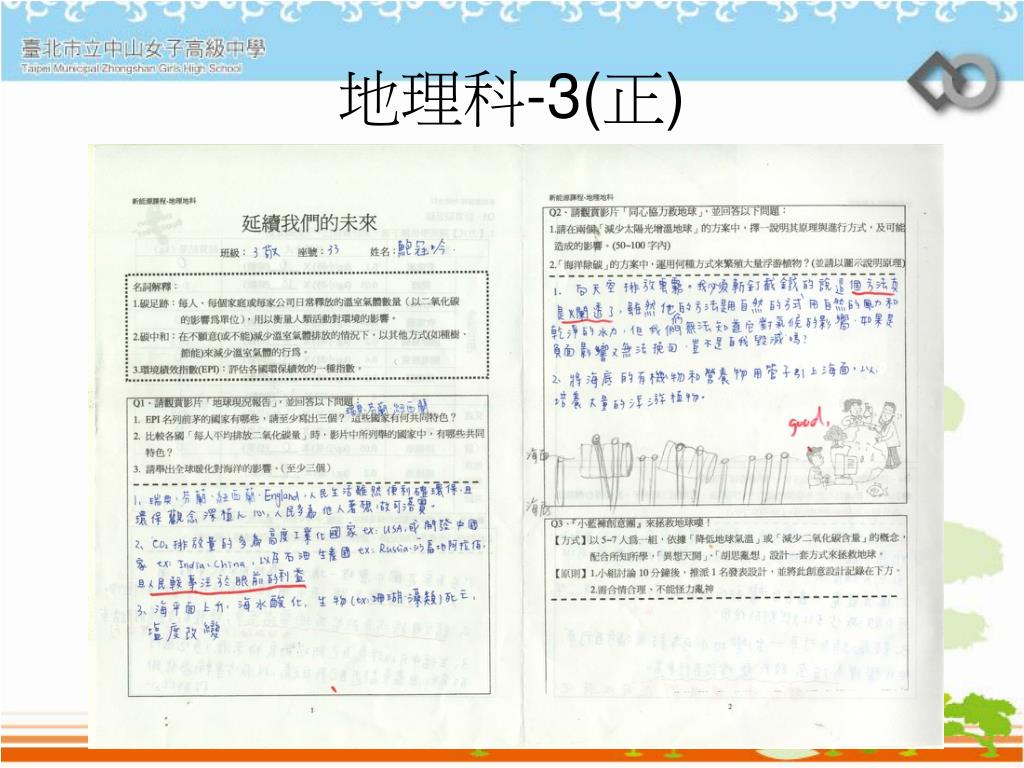 臺北市立中山女子高級中學
Taipei Municipal Zhongshan Girls High School
地理科-3(正)
新能源課程-地理地科
延續我們的未來
班級：3敬 座號：33 姓名：
名詞解釋：
1.碳足跡：每人、每個家庭或每家公司日常釋放的溫室氣體數量（以二氧化碳
的影響為單位），用以衡量人類活動對環境的影響。
2.碳中和：在不願意(或不能)減少溫室氣體排放的情況下，以其他方式(如種樹、
節能)來減少溫室氣體的行為。
3.環境績效指數(EPI)：評估各國環保績效的一種指數。
Q1、請觀賞影片「地球現況報告」，並回答以下問題：
瑞典.芬蘭.紐西蘭
1. EPI 名列前茅的國家有哪些，請至少寫出三個？ 這些國家有何共同特色？
2. 比較各國「每人平均排放二氧化碳量」時，影片中所列舉的國家中，有哪些共同
特色？
3. 請舉出全球暖化對海洋的影響。(至少三個）
1、瑞典.芬蘭.紐西蘭.England,人民生活雖然便利確環保,且
環保觀念深植人心,人民多為他人著想,故可落實。
2、CO2 排放量的多為高度工業化國家 ex: USA,或開發中國
家 ex: India、China,以及石油生產國 ex: Russia.沙烏地阿拉伯,
且人民較專注於眼前的利益
3、海平面上升,海水酸化,生物(ex:珊瑚.藻類)死亡,
鹽度改變
1
新能源課程-地理地科
Q2、請觀賞影片「同心協力救地球」，並回答以下問題：
1.請在兩個「減少太陽光增溫地球」的方案中，擇一說明其原理與進行方式，及可能
造成的影響。(50~100 字內)
2.「海洋除碳」的方案中，運用何種方式來繁殖大量浮游植物？(並請以圖示說明原理)
1、向天空排放雲霧。我必須斬釘截鐵的說這個方法真
是X閉透了,雖然他的方法是用自然的方式用自然的風力和
乾淨的水力,但我們無法知道它對氣候的影響,如果是
負面影響又無法挽回,豈不是自我毀滅嗎?
2、將海底的有機物和營養物用管子引上海面,以
培養大量的浮游植物。
good.
海面
海底
Q3、『小藍褲創意團』來拯救地球嘍！
【方式】以 5~7 人為一組，依據「降低地球氣溫」或「減少二氧化碳含量」的概念，
配合所知所學，「異想天開」、「胡思亂想」設計一套方式來拯救地球。
【原則】1.小組討論 10 分鐘後，推派 1 名發表設計，並將此創意設計記錄在下方。
2.需合情合理、不能怪力亂神
2